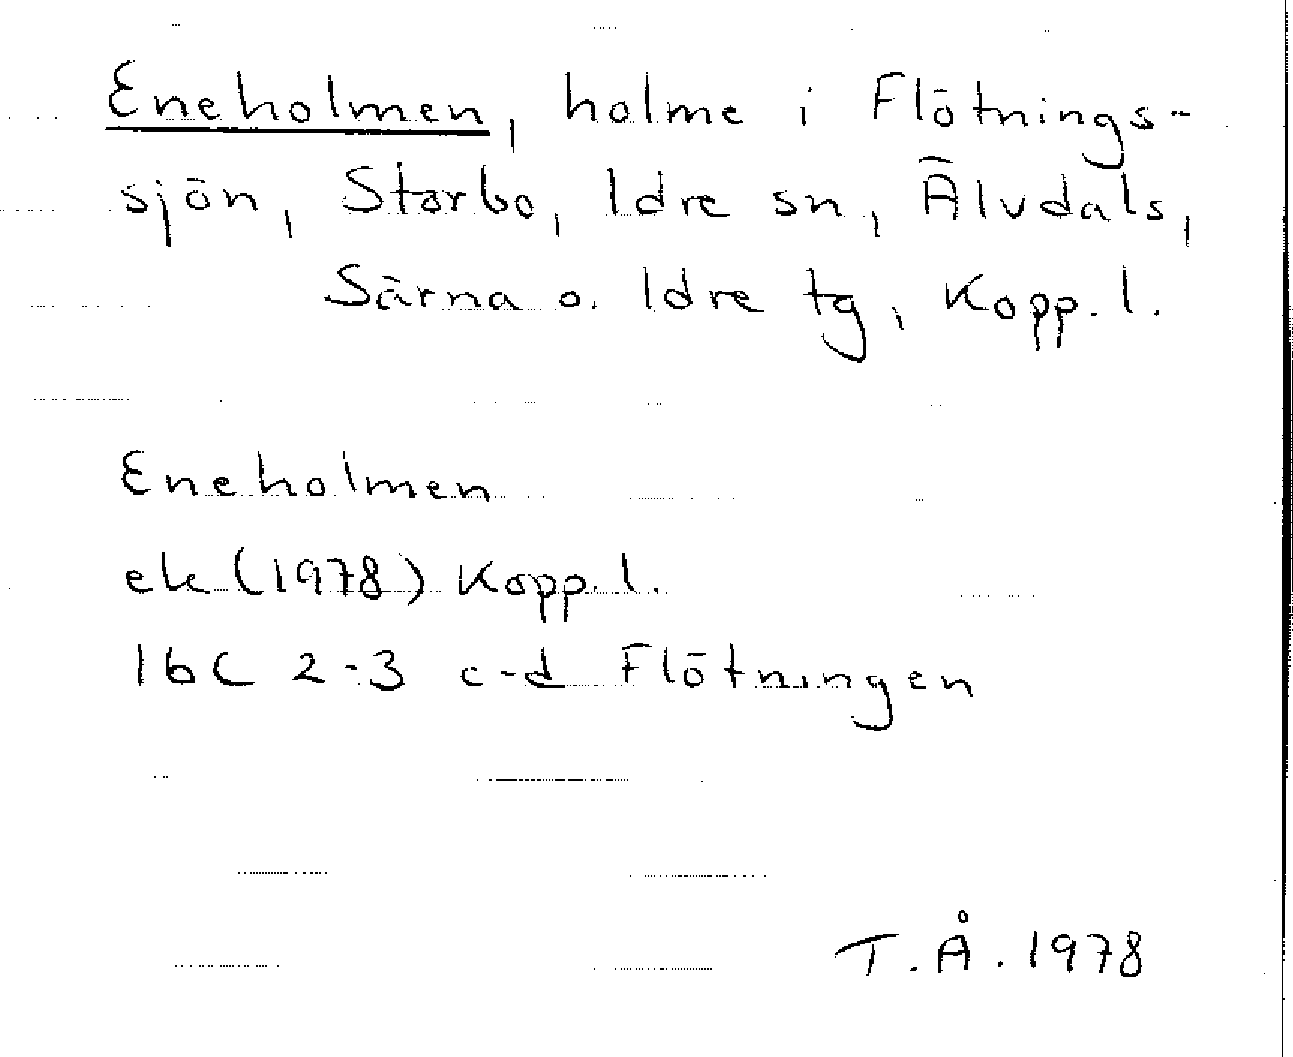 Eneholmen, holme i Flötnings-
sjön, Storbo, Idre sn, Älvdals,
Särna o. Idre tg, Kopp. l.
Eneholmen
ek (1978) Kopp. l.
16C 2-3 c-d Flötningen
T.Å. 1978